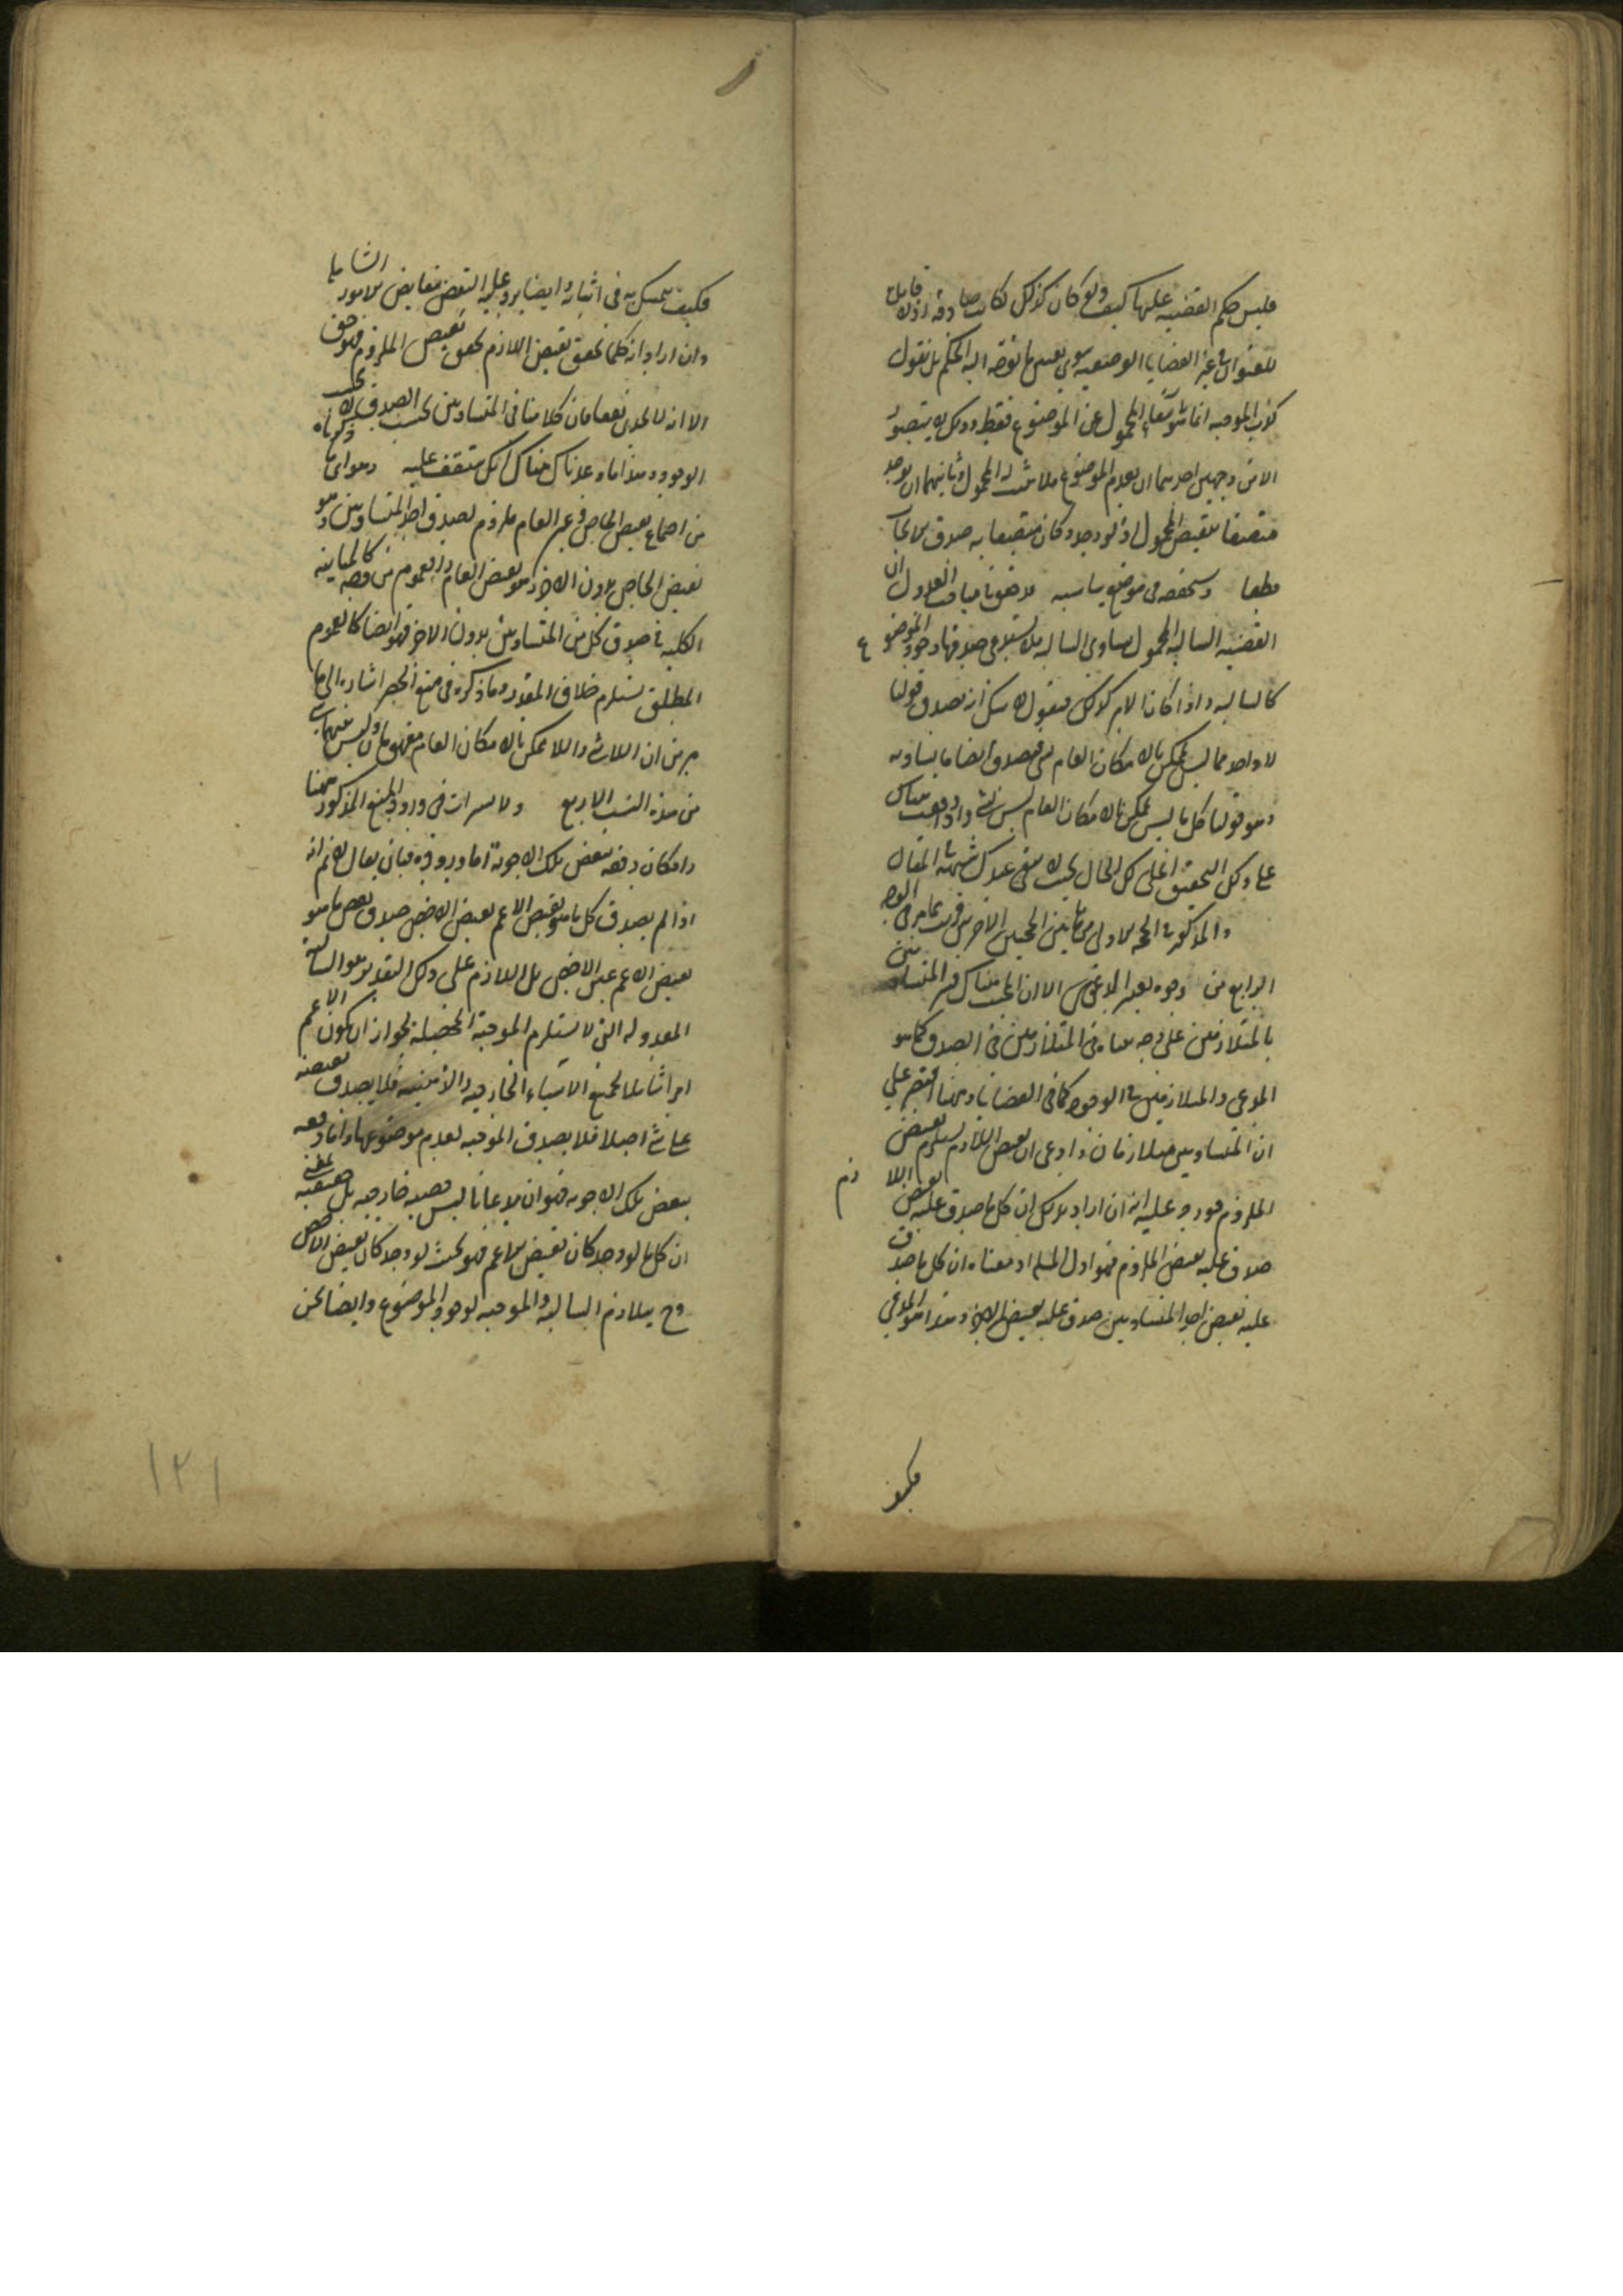 فليس حكم القضية عليها كيف ولو كان كذلك لكانت صادقة اذ لا قابل
للعنوان في غير القضايا الوصفية سوى تعيين ما توجه اليه الحكم بل نقول
كذب الموجبة انما هو بانتفاء المحمول عن الموضوع فقط وذلك لا يتصور
الا من وجهين احدهما ان يعدم الموضوع فلا يثبت له المحمول وثانيهما ان يوجد
متصفا بنقيض المحمول اذ لو وجد وكان متصفا به صدق الايجاب
قطعا وستحققه في موضع يناسبه
القضية السالبة المحمول يساوي السالبة فلا يستدعي صدقها وجود الموضوع
كالسالبة واذا كان الامر كذلك فنقول لا شك انه يصدق قولنا
لا واحد مما ليس بممكن بالامكان العام شيء فيصدق ايضا ما يساويه
وهو قولنا كل ما ليس بممكن بالامكان العام ليس بشيء واذ وقعت هناك
على ذلك التحقيق
والمذكور في الاول من هاتين الحجتين الاخيرتين قريب مما مر في الوجه
الرابع من وجوه تغيير المدعى الا ان المجيب هناك فسر المتساويين
بالمتلازمين على وجه معناه في المتلازمين في الصدق كما هو
المدعى والمتلازمين في الوجود كما في القضايا وههنا اقتصر على
ان المتساويين متلازمان وادعى ان نقيض اللازم يستلزم نقيض
الملزوم فورد عليه انه ان اراد بذلك ان كل ما صدق عليه نقيض اللازم
صدق عليه نقيض الملزوم فهو اول المسئلة اذ معناه ان كل ما صدق
عليه نقيض احد المتساويين صدق عليه نقيض الاخر وهذا هو المدعى
فكيف
فكيف يتمسك به في اثباته وايضا يرد عليه النقض بنقايض الامور الشاملة
وان اراد انه كلما تحقق نقيض اللازم تحقق نقيض الملزوم فهو حق
الا انه لا يجدي نفعا فان كلامنا في المتساويين بحسب الصدق لا بحسب
الوجود وهذا ما وعدناك هناك انك ستقف عليه وما ذكرناه
من اجتماع نقيض الخاص في عين العام ملزوم لصدق احد المتساويين وهو
نقيض الخاص بدون الاخر وهو نقيض العام والعموم من وجه كالمباينة
الكلية في صدق كل من المتساويين بدون الاخر فهو ايضا كالعموم
المطلق يستلزم خلاف المقدر وما ذكره في منع الحصر اشارة الى ما
مر من ان اللاشيء واللاممكن بالامكان العام مفهومان وليس بينهما شيء
من هذه النسب الاربع ولا يستراب في ورود المنع المذكور ههنا
وامكان دفعه ببعض تلك الاجوبة اما وروده فبان يقال لا نم انه
اذا لم يصدق كل ما هو نقيض الاعم نقيض الاخص صدق بعض ما هو
نقيض الاعم عين الاخص بل اللازم على ذلك التقدير هو السالبة
المعدولة التي لا تستلزم الموجبة المحصلة لجواز ان يكون الاعم
امرا شاملا لجميع الاشياء الخارجية والذهنية فلا يصدق نقيضه
على شيء اصلا فلا يصدق الموجبة لعدم موضوعها واما دفعه
ببعض تلك الاجوبة فهو ان مدعانا ليس قضية خارجية بل حقيقية
ان كل ما لو وجد كان نقيض الاعم فهو بحيث لو وجد كان نقيض الاخص
وح يتلازم السالبة والموجبة لوجود الموضوع وايضا نحن
١٢١